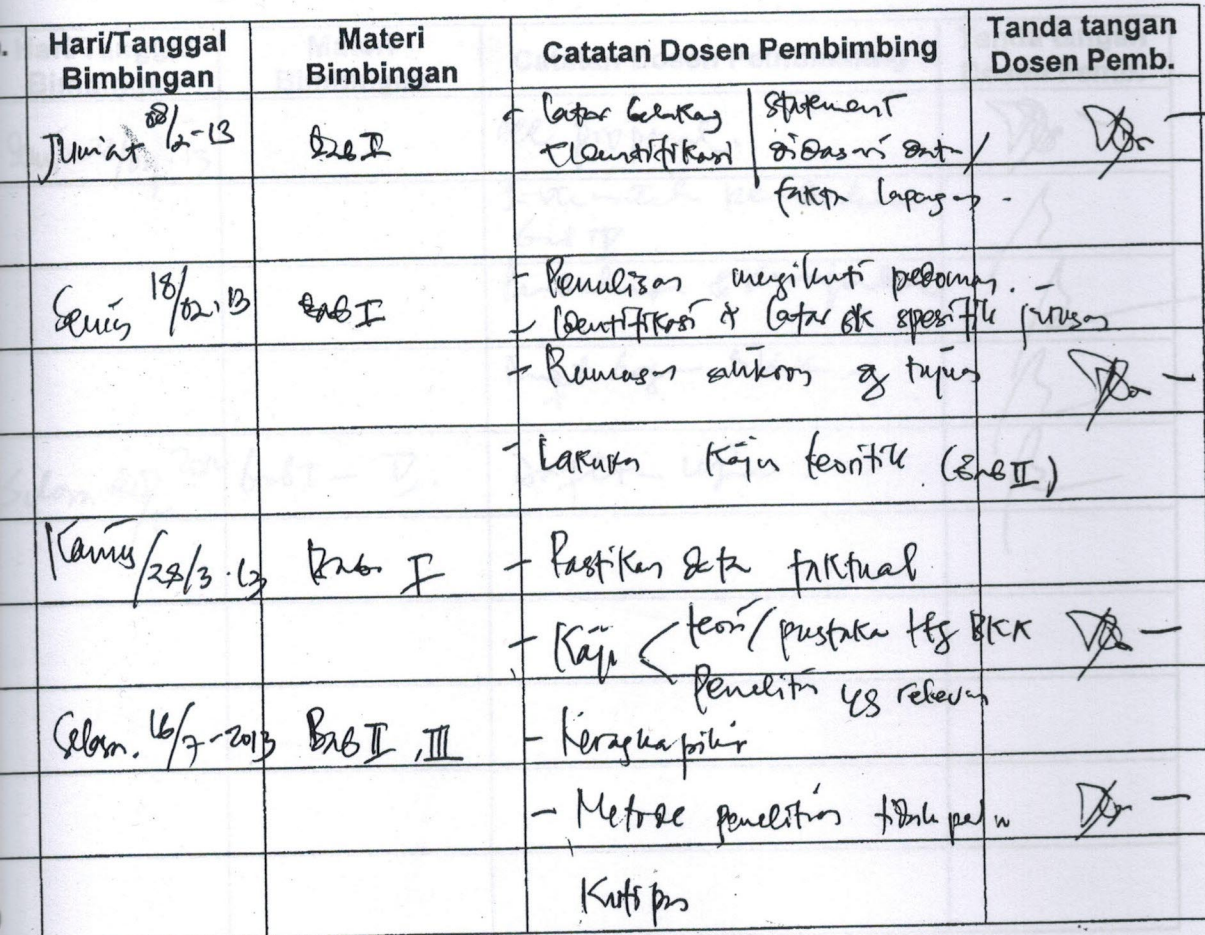 Hari/Tanggal Bimbingan
Materi Bimbingan
Catatan Dosen Pembimbing
Tanda tangan Dosen Pemb.
Jum'at 08/2-13
Bab I
- Latar belakag | statement
Identifikasi | didasari data /
fakta lapagan.
Senin 18/02.13
Bab I
- Penulisan mengikuti pedoman.
- Identifikasi & latar bk spesifik jurusan
- Rumusan sinkron dg tujuan
- Lakukan kajian teoritik (Bab II)
Kamis/28/3.13
Bab I
- Pastikan data faktual
- Kaji < teori/pustaka ttg BKK
Penelitian yg relevan
Selasa. 16/7-2013
Bab II, III
- Keragka pikir
- Metode penelitian tidak perlu
Kutipan